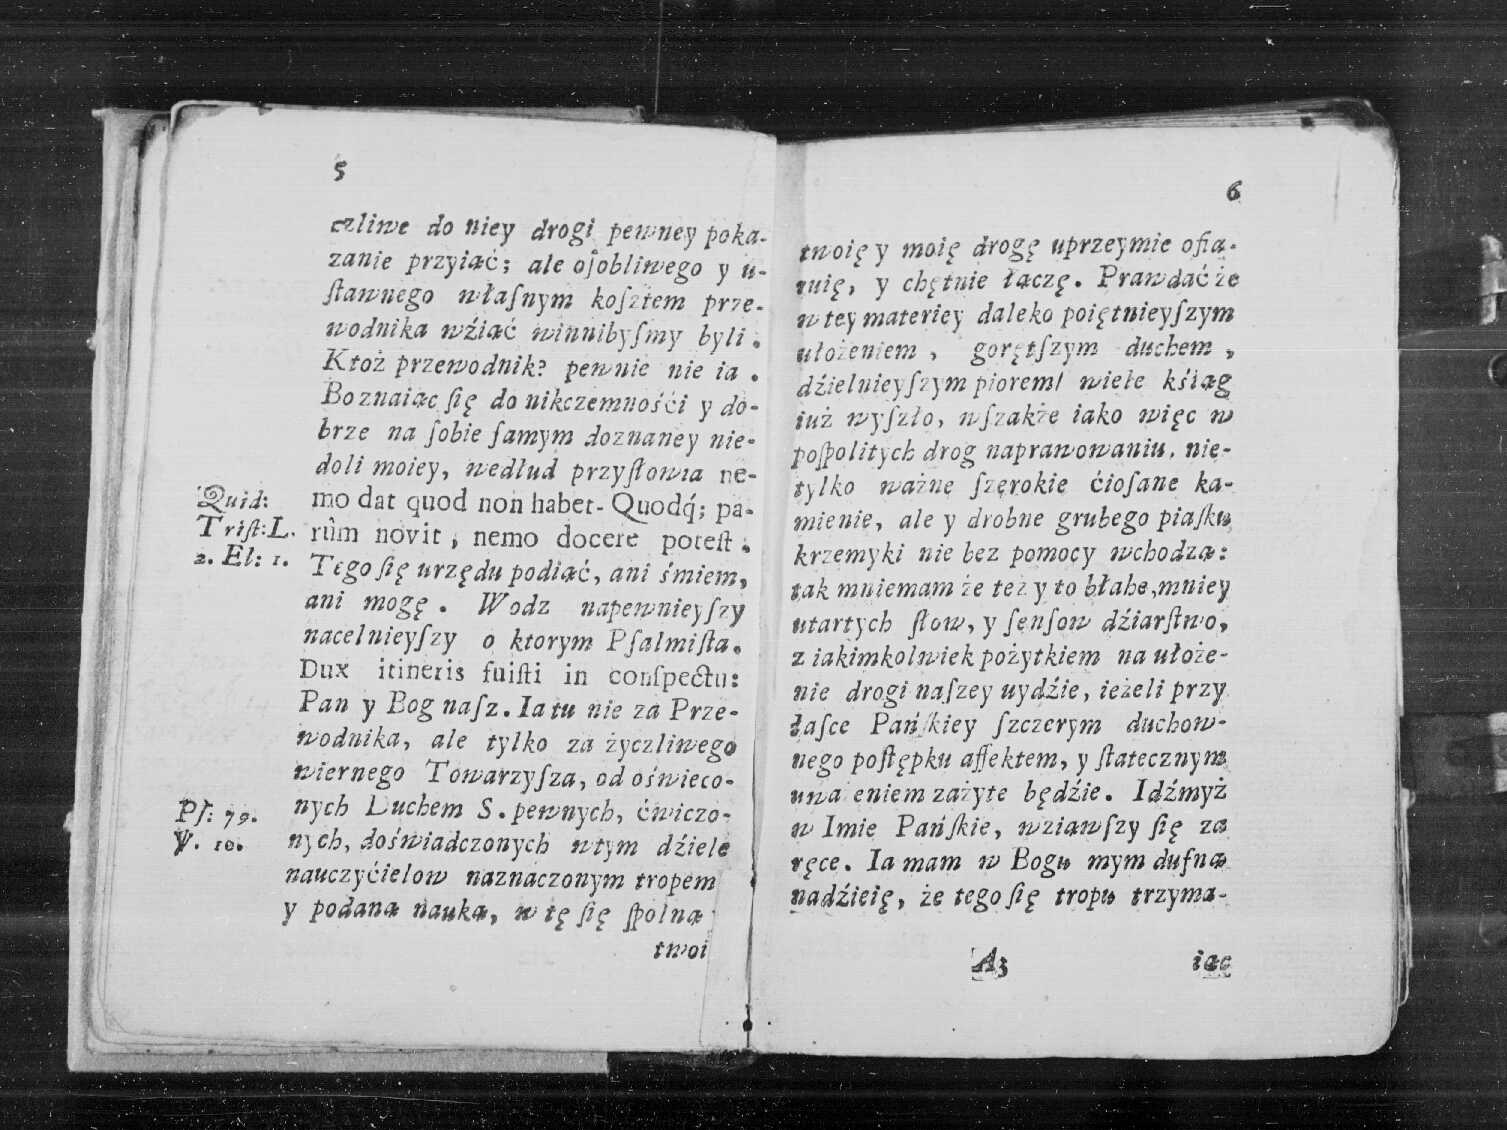 5
czliwe do niey drogi pewney poka-
zanie przyiąć; ale oſobliwego y u-
ſtawnego właſnym koſztem prze-
wodnika wźiąć winnibyſmy byli.
Ktoż przewodnik? pewnie nie ia.
Bo znaiąc ſię do nikczemnośći y do-
brze na ſobie ſamym doznaney nie-
doli moiey, wedlud przyſłowia ne-
mo dat quod non habet. Quodq́; pa-
rûm novit, nemo docere poteſt.
Tego ſię urzędu podiąć, ani śmiem,
ani mogę. Wodz napewnieyſzy
nacelnieyſzy o ktorym Pſalmiſta.
Dux itineris fuiſti in conſpectu:
Pan y Bog naſz. Ia tu nie zá Prze-
wodnika, ale tylko za życzliwego
wiernego Towarzyſza, od oświeco-
nych Duchem S. pewnych, ćwiczo-
nych, doświadczonych wtym dźiele
nauczyćielow naznaczonym tropem
y podaną nauką, w tę ſię ſpolną
twoi
Quid:
Triſt: L.
2. El: 1.
Pſ: 79.
℣. 10.
6
twoię y moię drogę uprzeymie ofia-
ruię, y chętnie łączę. Prawdać że
w tey materiey daleko poiętnieyſzym
ułożeniem, gorętſzym duchem,
dźielnieyſzym piorem/ wiele kśiąg
iuż wyſzło, wſzakże iako więc w
poſpolitych drog naprawowaniu, nie-
tylko ważne ſzerokie ćioſane ka-
mienie, ale y drobne grubego piaſku
krzemyki nie bez pomocy wchodzą:
tak mniemam że też y to błahe, mniey
utartych ſłow, y ſenſow dźiarſtwo,
z iakimkolwiek pożytkiem na ułoże-
nie drogi naſzey uydźie, ieżeli przy
łaſce Pańſkiey ſzczerym duchow-
nego poſtępku affektem, y ſtatecznym
uwa eniem zażyte będźie. Idźmyż
w Imie Pańſkie, wziąwſzy ſię za
ręce. Ia mam w Bogu mym dufną
nadźieię, że tego ſię tropu trzyma-
A3
iąc